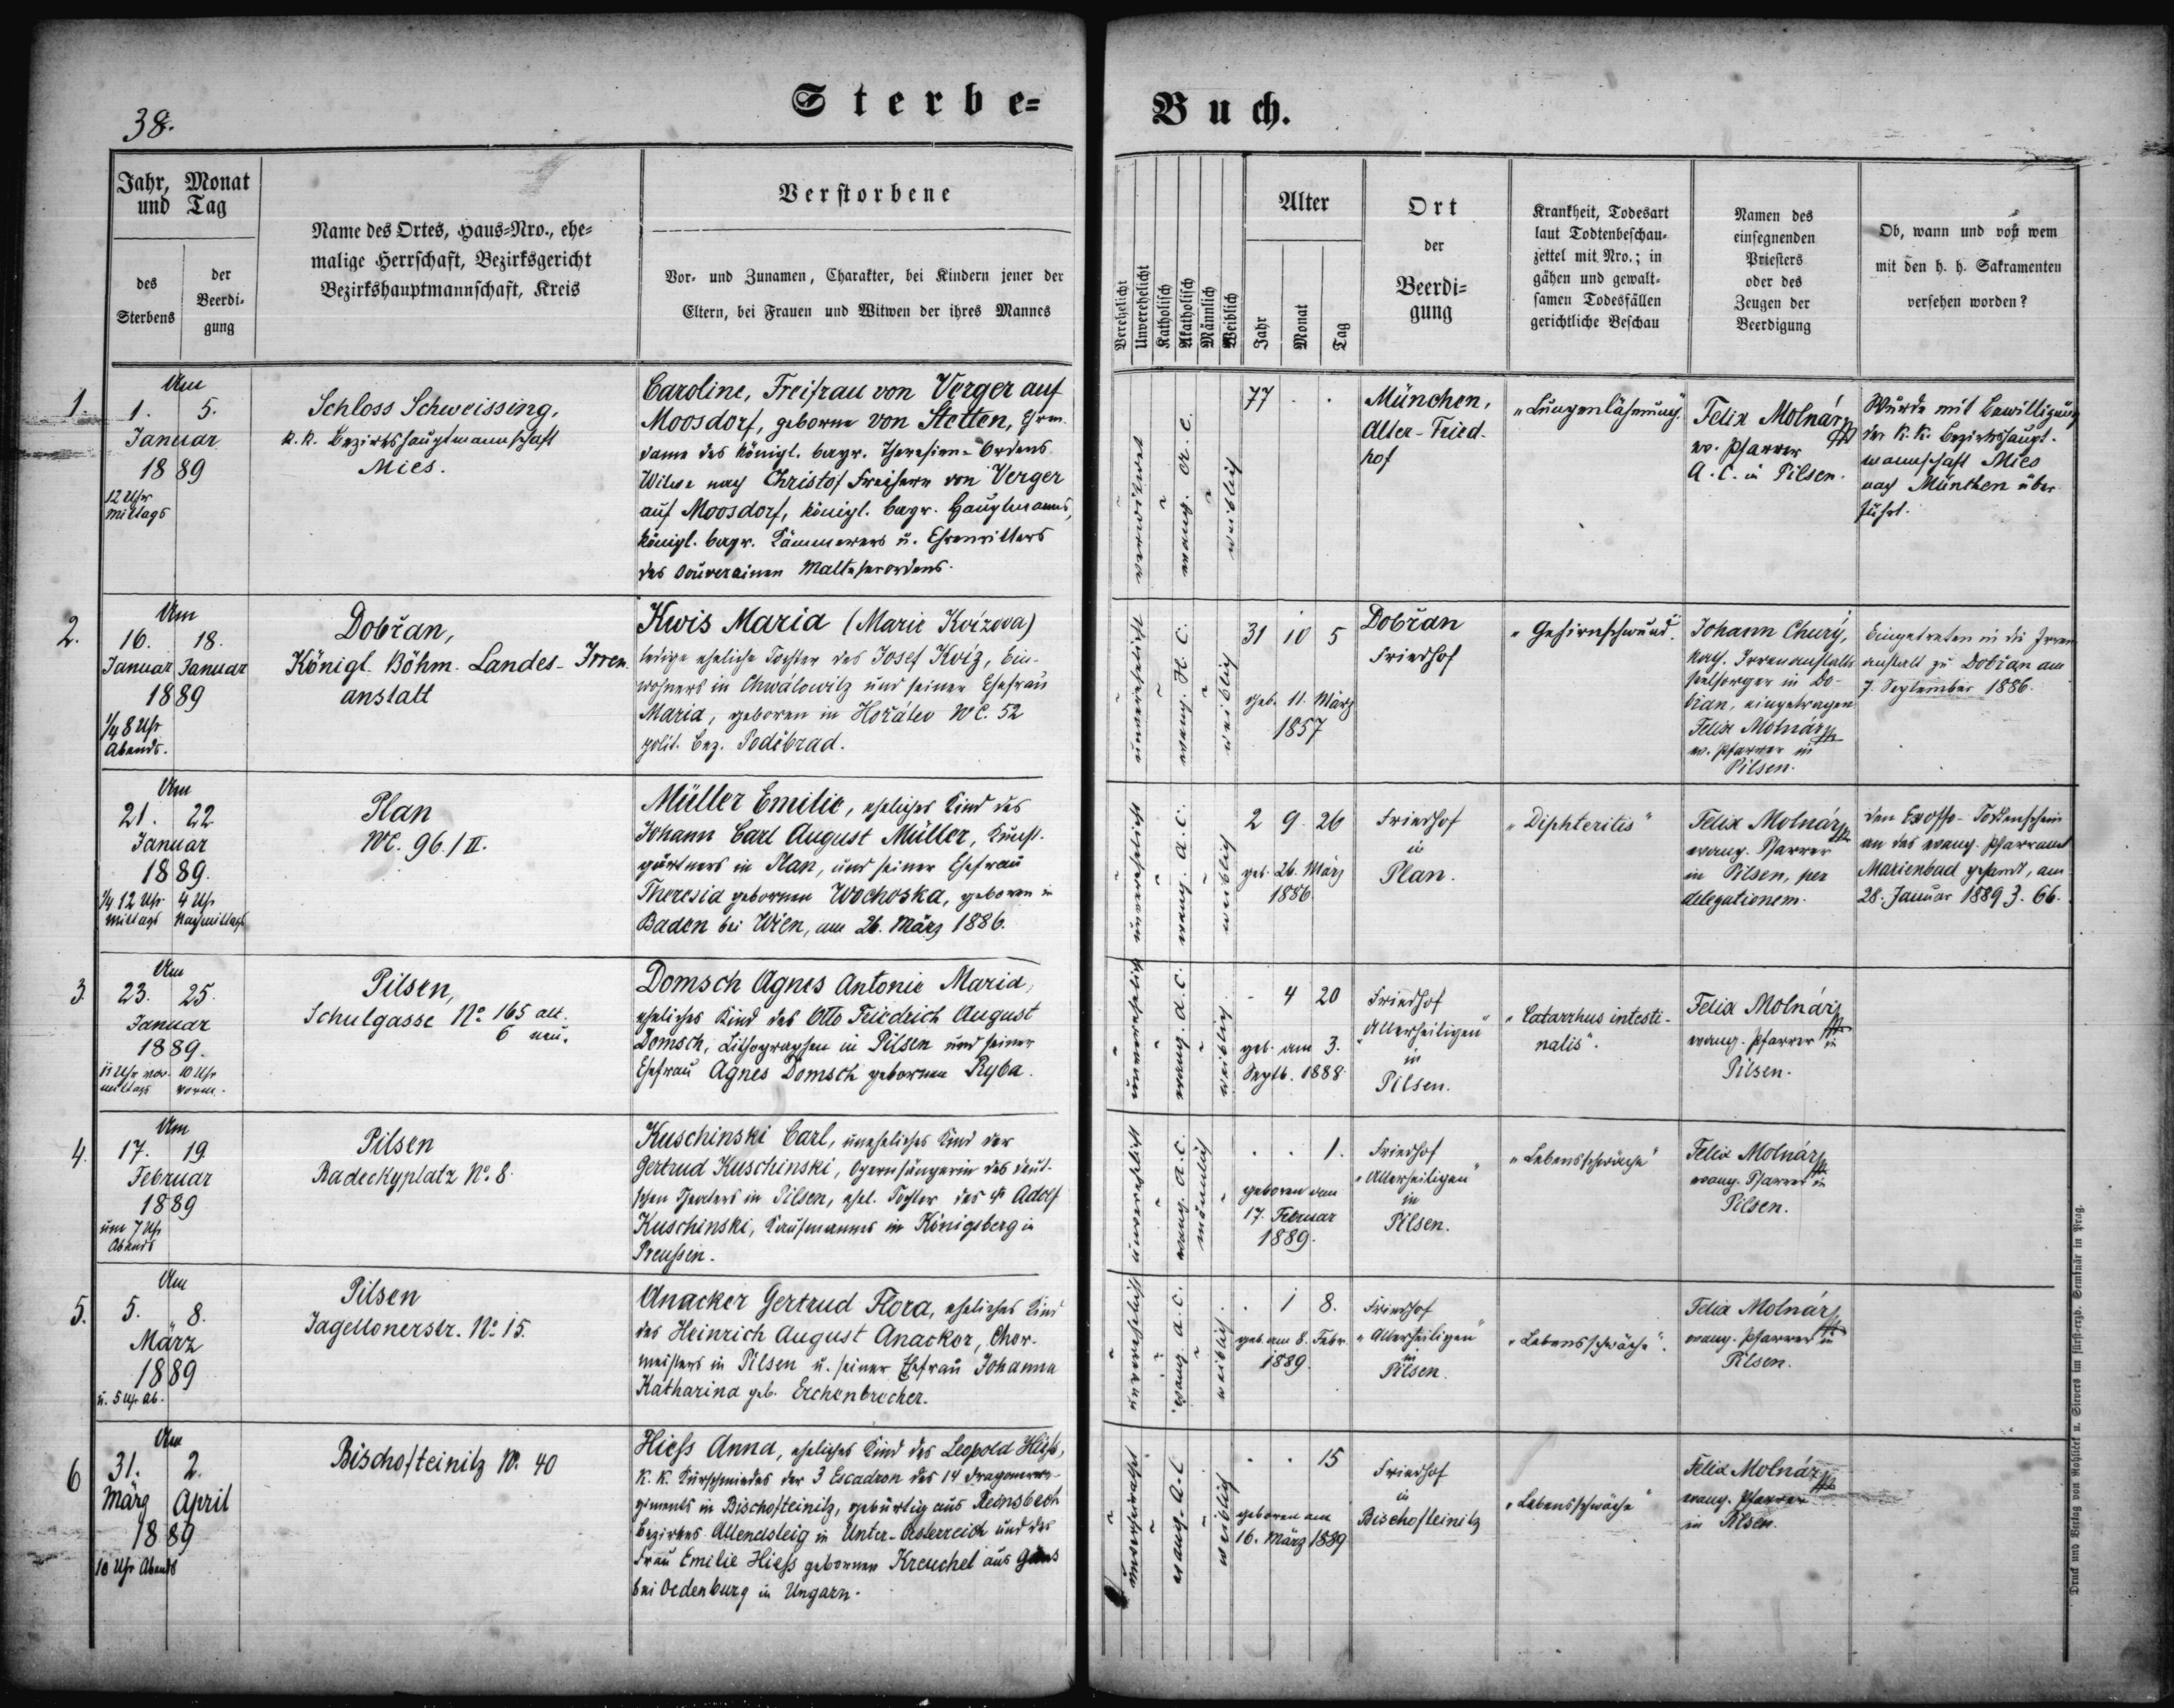 38.
Sterbe=
Buch.
Jahr, Monat
und Tag
des
Sterbens
der
Beerdi-
gung
Name des Ortes, Haus=Nro., ehe=
malige Herrschaft, Bezirksgericht
Bezirkshauptmannschaft, Kreis
Verstorbene
Vor- und Zunamen, Charakter, bei Kindern jener der
Eltern, bei Frauen und Witwen der ihres Mannes
Verehelicht
Unverehelicht
Katholisch
Akatholisch
Männlich
Weiblich
Alter
Jahr
Monat
Tag
Ort
der
Beerdi=
gung
Krankheit, Todesart
laut Todtenbeschau-
zettel mit Nro.; in
gähen und gewalt-
samen Todesfällen
gerichtliche Beschau
Namen des
einsegnenden
Priesters
oder des
Zeugen der
Beerdigung
Ob, wann und von wem
mit den h. h. Sakramenten
versehen worden?
1.
Am
1. 5.
Januar
1889
12 Uhr
mittags
Schloss Schweissing,
k. k. Bezirkshauptmannschaft
Mies.
Caroline, Freifrau von Verger auf
Moosdorf, geborne von Stetten, Ehren-
dame des königl. bayr. Theresien-Ordens
Witwe nach Christof Freiherrn von Verger
auf Moosdorf, königl. bayr. Hauptmanns,
königl. bayr. Kämmerers u. Ehrenritters
des souverainen Malteserordens.
verwitwet
evang. A. C.
weiblich
77 . .
München,
Alter-Fried-
hof
"Lungenlähmung".
Felix Molnár
ev. Pfarrer
A. C. in Pilsen.
Wurde mit Bewilligung
der k. k. Bezirkshaupt-
mannschaft Mies
nach München über-
führt.
2.
Am
16. 18.
Januar Januar
1889
1/4 8 Uhr
Abends.
Dobřan,
Königl. Böhm. Landes-Irren-
anstalt
Kwis Maria (Marie Kvízova)
ledige eheliche Tochter des Josef Kvíz, Ein-
wohners in Chwálowitz und seiner Ehefrau
Maria, geboren in Hořátev NC. 52
polit. Bez. Poděbrad.
unverehelicht
evang. H. C.
weiblich
31 10 5
geb. 11. März
1857
Dobřan
Friedhof
"Gehirnschwund".
Johann Churý,
kath. Irrenanstalts
seelsorger in Do-
břan, eingetragen
Felix Molnár
ev. Pfarrer in
Pilsen.
Eingetreten in die Irren-
anstalt zu Dobřan am
7. September 1886.
Am
21. 22
Januar
1889.
1/4 12 Uhr 4 Uhr
mittags Nachmittags
Plan
NC. 96./II.
Müller Emilie, eheliches Kind des
Johann Carl August Müller, Kunst-
gärtners in Plan, und seiner Ehefrau
Theresia gebornen Wochoska, geboren in
Baden bei Wien, am 26. März 1886.
unverehelicht
evang. A. C.
weiblich
2 9 26
geb. 26. März
1886
Friedhof
in
Plan.
"Diphteritis"
Felix Molnár
evang. Pfarrer
in Pilsen, per
delegationem.
Den Exoffo-Todtenschein
an das evang. Pfarramt
Marienbad gesandt, am
28. Januar 1889 Z. 66.
3.
Am
23. 25.
Januar
1889.
11 Uhr vor- 10 Uhr
mittags vorm.
Pilsen,
Schulgasse No. 165 alt.
6 neu.
Domsch Agnes Antonie Maria,
eheliches Kind des Otto Friedrich August
Domsch, Lithographen in Pilsen und seiner
Ehefrau Agnes Domsch gebornen Ryba.
unverehelicht
evang. A. C.
weiblich
- 4 20
geb. am 3.
Septb. 1888.
Friedhof
"Allerheiligen"
in
Pilsen.
"Catarrhus intesti-
nalis".
Felix Molnár
evang. Pfarrer in
Pilsen.
4.
Am
17. 19.
Februar
1889
um 7 Uhr
Abends
Pilsen
Radeckyplatz No. 8.
Kuschinski Carl, uneheliches Kind der
Gertrud Kuschinski, Opernsängerin des deut-
schen Theaters in Pilsen, ehel. Tochter des † Adolf
Kuschinski, Kaufmannes in Königsberg in
Preußen.
unverehelicht
evang. A. C.
männlich
. . 1.
geboren am
17. Februar
1889.
Friedhof
"Allerheiligen"
in
Pilsen.
"Lebensschwäche"
Felix Molnár
evang. Pfarrer in
Pilsen.
5.
Am
5. 8.
März
1889
u. 5 Uhr Ab.
Pilsen
Jagellonerstr. No. 15.
Anacker Gertrud Flora, eheliches Kind
des Heinrich August Anacker, Chor-
meisters in Pilsen u. seiner Ehefrau Johanna
Katharina geb. Erchenbrecher.
unverehelicht
evang. A. C.
weiblich
. 1 8.
geb. am 8. Febr.
1889.
Friedhof
"Allerheiligen"
in
Pilsen.
"Lebensschwäche".
Felix Molnár
evang. Pfarrer in
Pilsen.
6
Am
31. 2.
März April
1889
10 Uhr Abends
Bischofteinitz N. 40
Hiess Anna, eheliches Kind des Leopold Hiess,
K. K. Kurschmiedes der 3 Escadron des 14 Dragonerre-
giments in Bischofteinitz, gebürtig aus Reinsbach
Bezirkes Allentsteig in Unter-Österreich und der
Frau Emilie Hiess gebornen Kreuchel aus Güns
bei Oedenburg in Ungarn.
evang. A. C.
weiblich
. . 15
geboren am
16. März 1889
Friedhof
in
Bischofteinitz
"Lebensschwäche"
Felix Molnár
evang. Pfarrer
in Pilsen.
Druck und Verlag von Rohliček u. Sievers im fürst-erzb. Seminär in Prag.